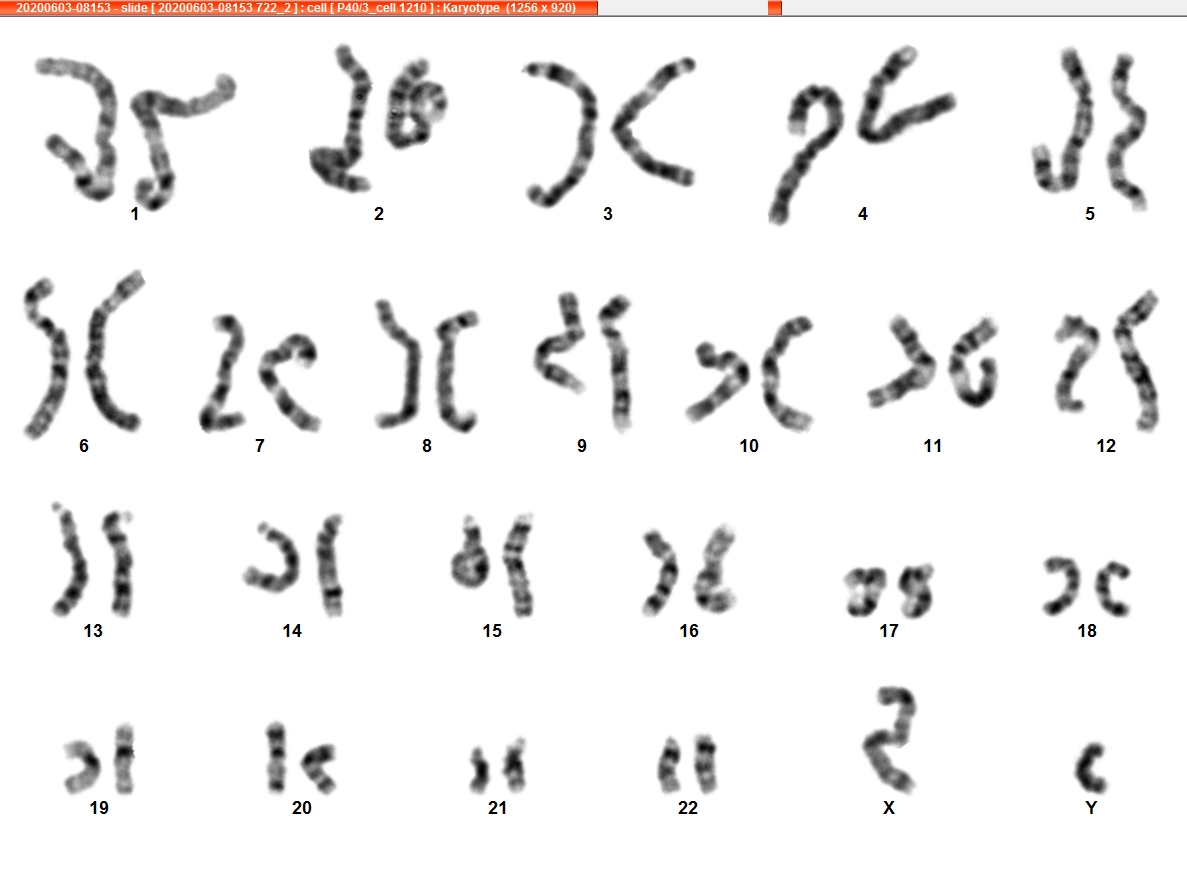 20200603-08153 - slide [ 20200603-08153 722_2 ] : cell [ P40/3_cell 1210 ] : Karyotype (1256 x 920)
1 2 3 4 5
6 7 8 9 10 11 12
13 14 15 16 17 18
19 20 21 22 X Y